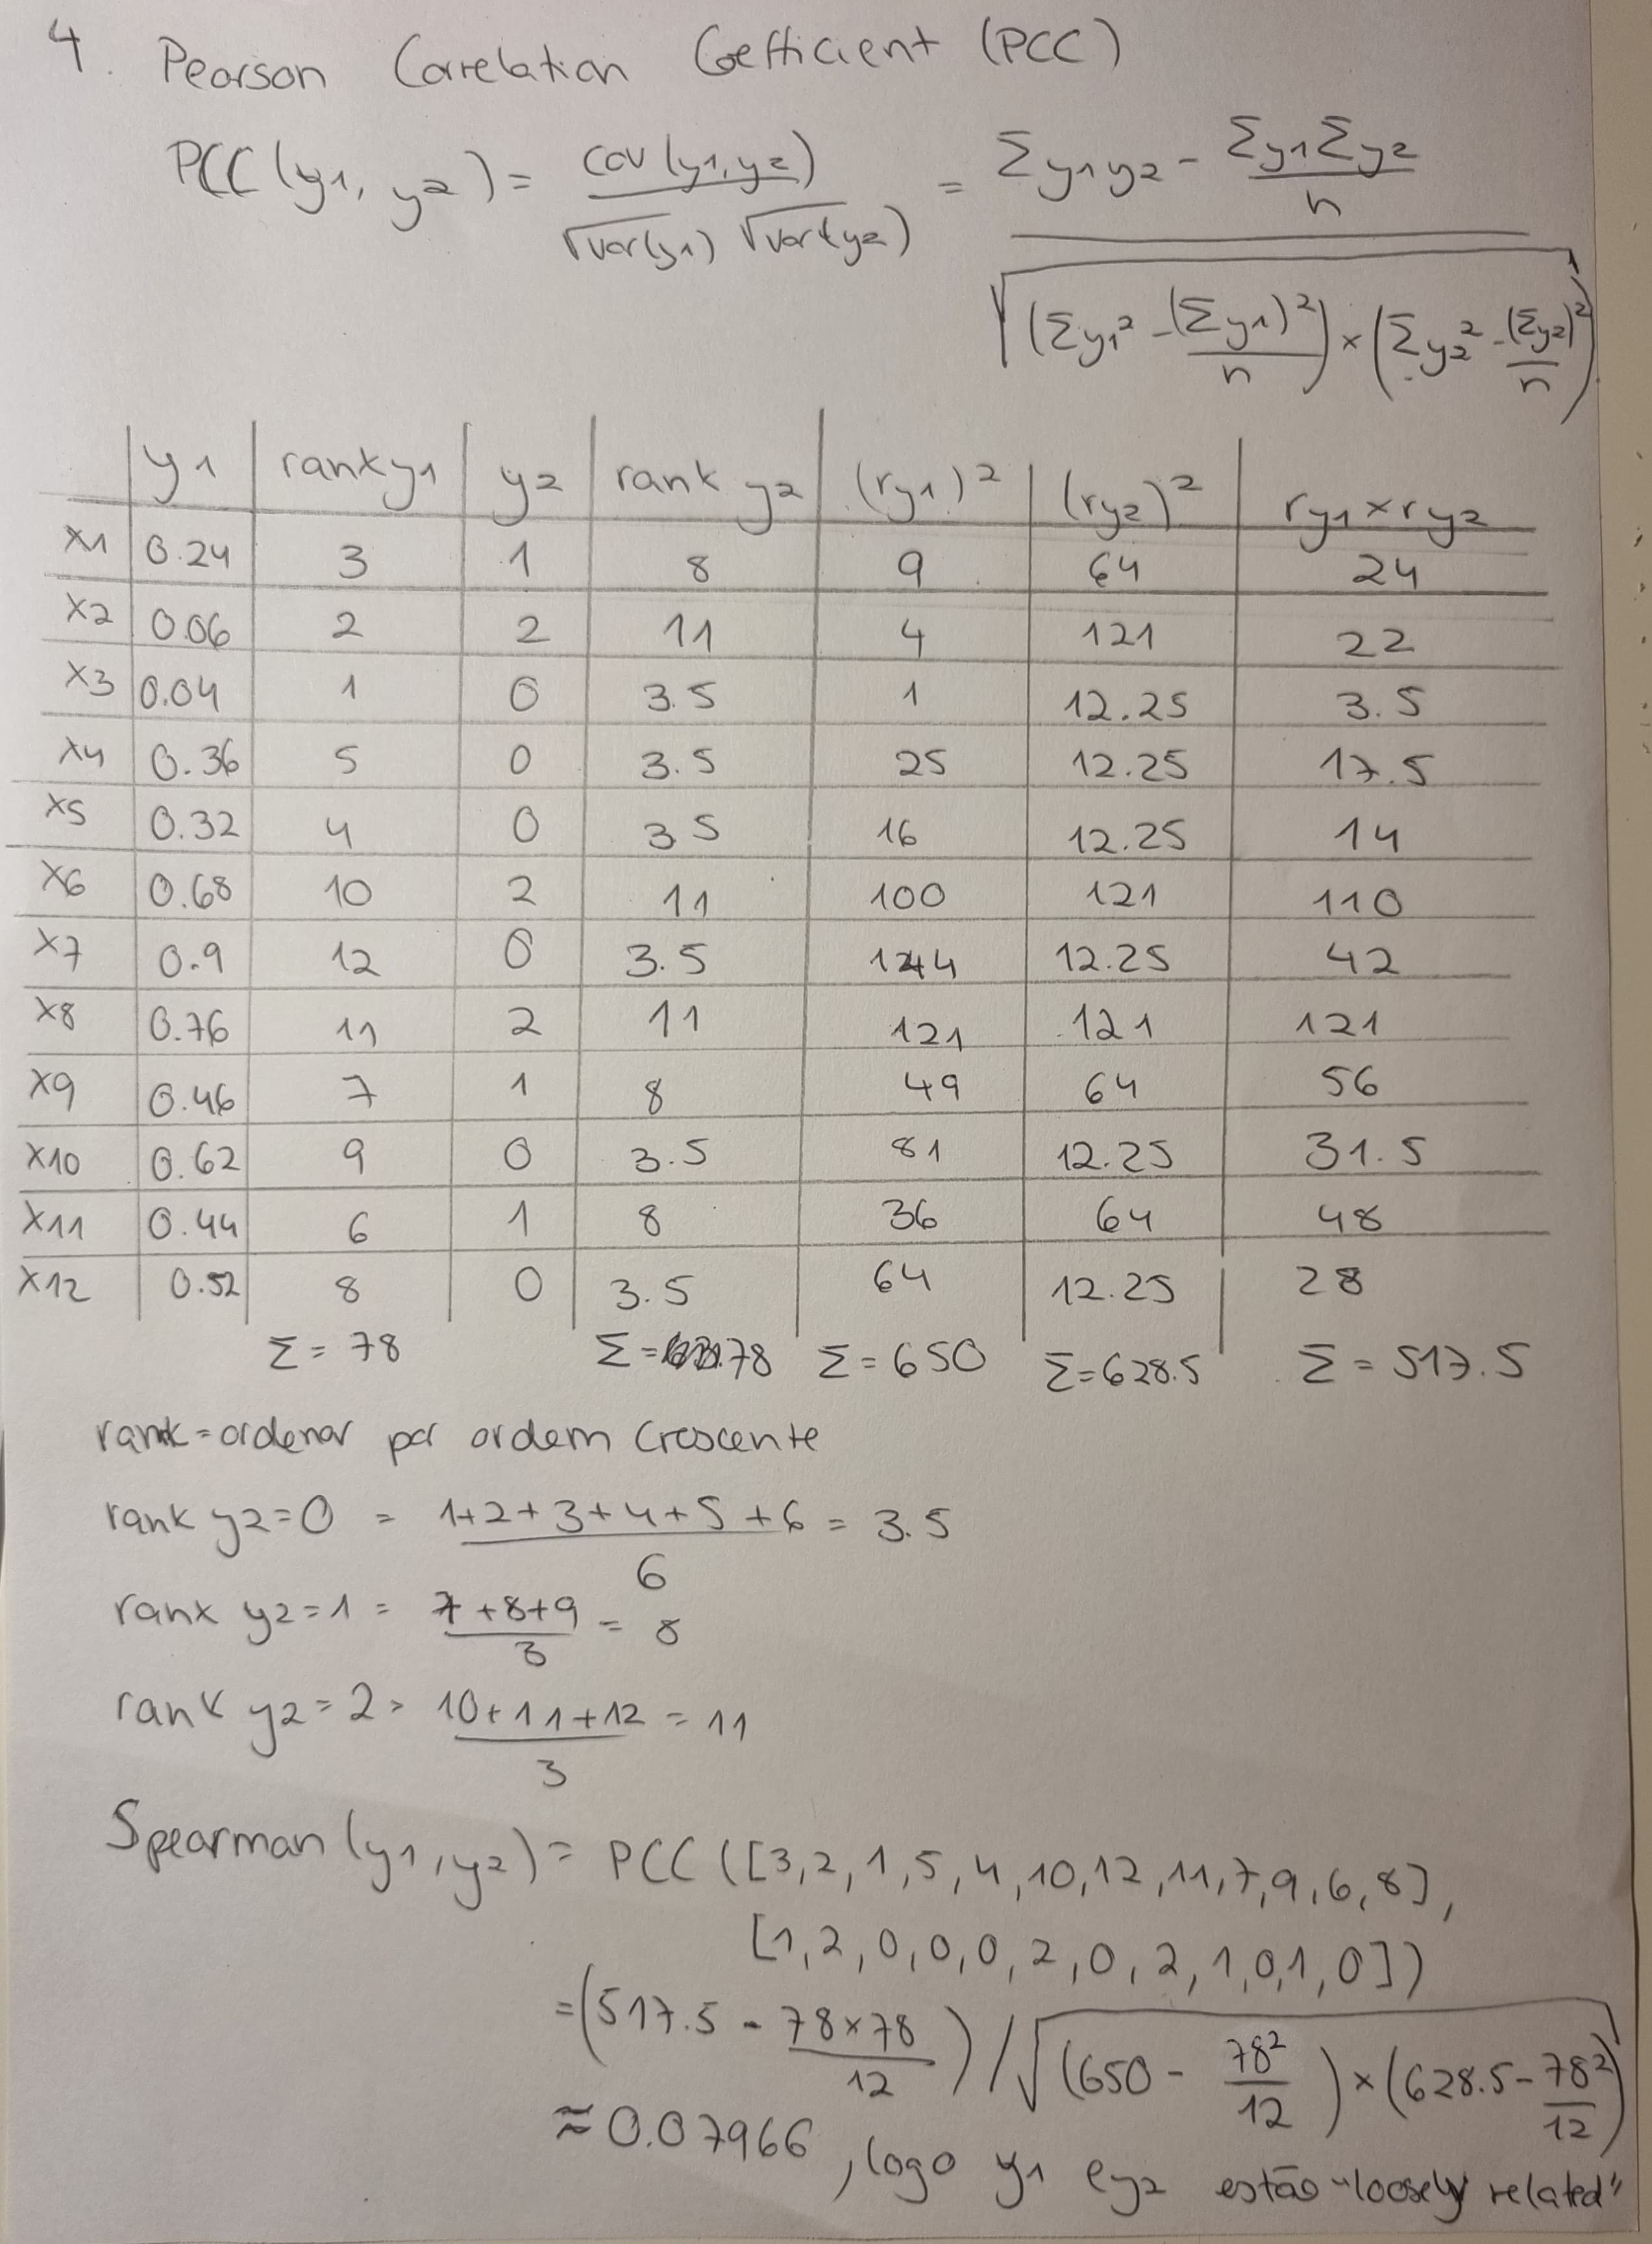 4. Pearson Correlation Coefficient (PCC)
PCC (y1, y2) = cov(y1,y2) / √var(y1) √var(y2) = (Σy1y2 - Σy1Σy2/n) / √((Σy1² - (Σy1)²/n) × (Σy2² - (Σy2)²/n))
y1 | rank y1 | y2 | rank y2 | (ry1)² | (ry2)² | ry1 × ry2
x1 | 0.24 | 3 | 1 | 8 | 9 | 64 | 24
x2 | 0.06 | 2 | 2 | 11 | 4 | 121 | 22
x3 | 0.04 | 1 | 0 | 3.5 | 1 | 12.25 | 3.5
x4 | 0.36 | 5 | 0 | 3.5 | 25 | 12.25 | 17.5
x5 | 0.32 | 4 | 0 | 3.5 | 16 | 12.25 | 14
x6 | 0.68 | 10 | 2 | 11 | 100 | 121 | 110
x7 | 0.9 | 12 | 0 | 3.5 | 144 | 12.25 | 42
x8 | 0.76 | 11 | 2 | 11 | 121 | 121 | 121
x9 | 0.46 | 7 | 1 | 8 | 49 | 64 | 56
x10 | 0.62 | 9 | 0 | 3.5 | 81 | 12.25 | 31.5
x11 | 0.44 | 6 | 1 | 8 | 36 | 64 | 48
x12 | 0.52 | 8 | 0 | 3.5 | 64 | 12.25 | 28
Σ = 78 Σ = 78 Σ = 650 Σ = 628.5 Σ = 517.5
rank = ordenar por ordem crescente
rank y2=0 = (1+2+3+4+5+6)/6 = 3.5
rank y2=1 = (7+8+9)/3 = 8
rank y2=2 = (10+11+12)/3 = 11
Spearman (y1,y2) = PCC ([3,2,1,5,4,10,12,11,7,9,6,8],
[1,2,0,0,0,2,0,2,1,0,1,0])
= (517.5 - 78×78/12) / √((650 - 78²/12) × (628.5 - 78²/12))
≈ 0.07966, logo y1 e y2 estão "loosely related"